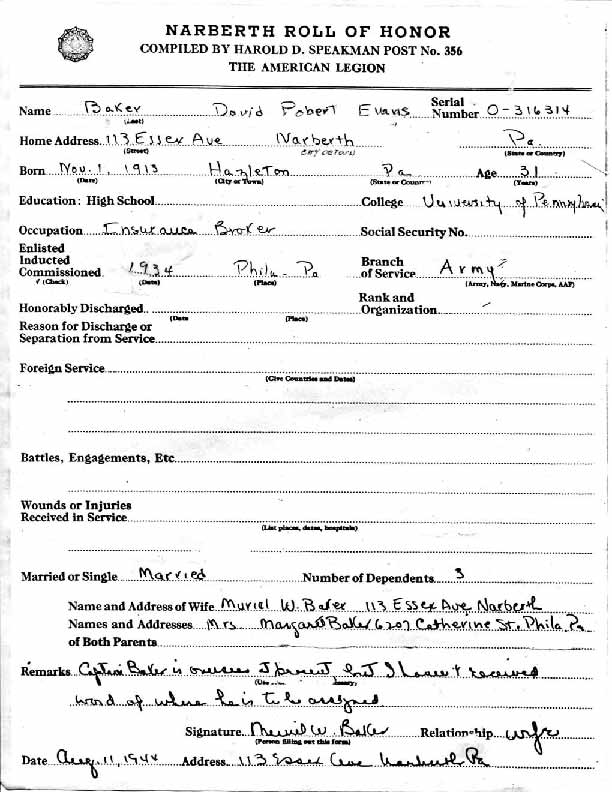 NARBERTH ROLL OF HONOR
COMPILED BY HAROLD D. SPEAKMAN POST No. 356
THE AMERICAN LEGION
Name Baker David Robert Evans Serial Number O-316314
(Last)
Home Address 113 Essex Ave Narberth Pa.
(Street) CITY OR TOWN (State or Country)
Born Nov. 1, 1913 Hazleton Pa Age 31
(Date) (City or Town) (State or Country) (Years)
Education: High School College University of Pennsylvania
Occupation Insurance Broker Social Security No.
Enlisted
Inducted Branch
Commissioned 1934 Phila- Pa of Service Army
✓ (Check) (Date) (Place) (Army, Navy, Marine Corps, AAF)
Rank and
Honorably Discharged Organization
(Date (Place)
Reason for Discharge or
Separation from Service
Foreign Service
(Give Countries and Dates)
Battles, Engagements, Etc
Wounds or Injuries
Received in Service
(List places, dates, hospitals)
Married or Single Married Number of Dependents 3
Name and Address of Wife Muriel W. Baker 113 Essex Ave, Narberth
Names and Addresses Mrs Margaret Baker 6207 Catherine St. Phila Pa
of Both Parents
Remarks Captain Baker is overseas I haven't received
word of where he is to be assigned
Signature Muriel W. Baker Relationship wife
(Person filling out this form)
Date Aug. 11, 1944 Address 113 Essex Ave Narberth Pa